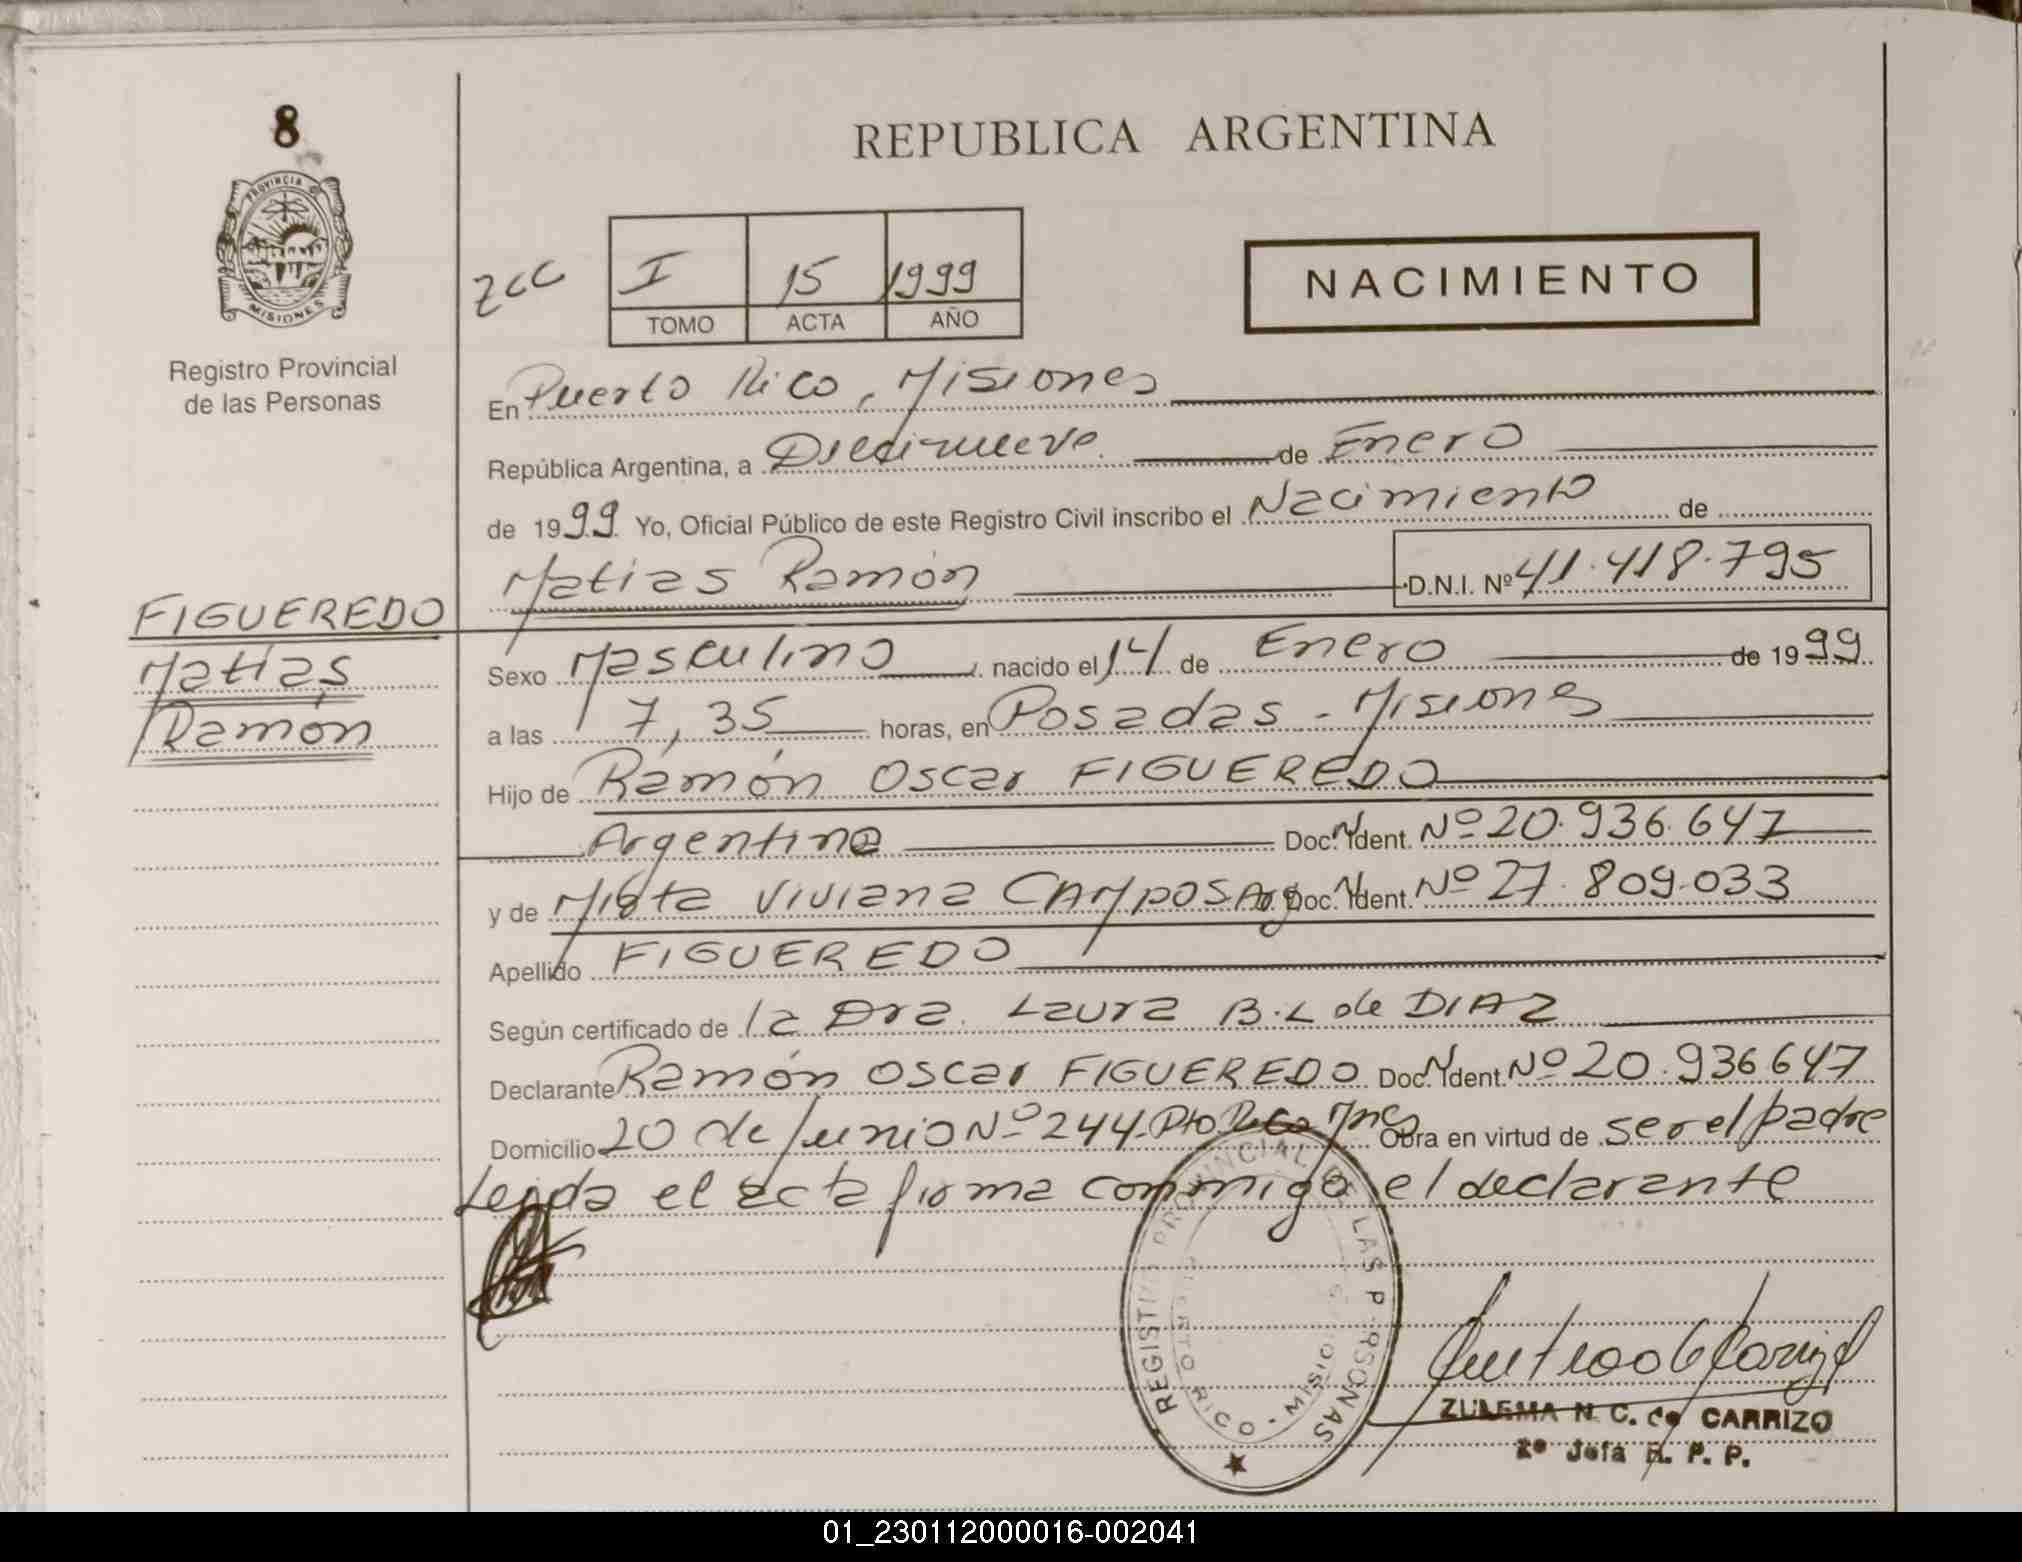 8
REPUBLICA ARGENTINA
PROVINCIA DE
MISIONES
Registro Provincial
de las Personas
zcc
I 15 1999
TOMO ACTA AÑO
NACIMIENTO
En Puerto Rico, Misiones
República Argentina, a Diecinueve de Enero
de 1999 Yo, Oficial Público de este Registro Civil inscribo el Nacimiento de
Matias Ramón D.N.I. Nº 41.418.795
FIGUEREDO
Matias
Ramón
Sexo Masculino nacido el 14 de Enero de 1999
a las 7,35 horas, en Posadas - Misiones
Hijo de Ramón Oscar FIGUEREDO
Argentino Doc. Ident. Nº 20.936.647
y de Mirta Viviana CAMPOS Arg Doc. Ident. Nº 27.809.033
Apellido FIGUEREDO
Según certificado de la Dra. Laura B.L de DIAZ
Declarante Ramón Oscar FIGUEREDO Doc. Ident. Nº 20.936647
Domicilio 20 de Junio Nº 244-Pto. Rico Mnes Obra en virtud de ser el padre
Leida el acta firma conmigo el declarante
REGISTRO PROVINCIAL DE LAS PERSONAS
PUERTO RICO - MISIONES
ZULEMA N. C. de CARRIZO
2º Jefa R. P. P.
01_230112000016-002041